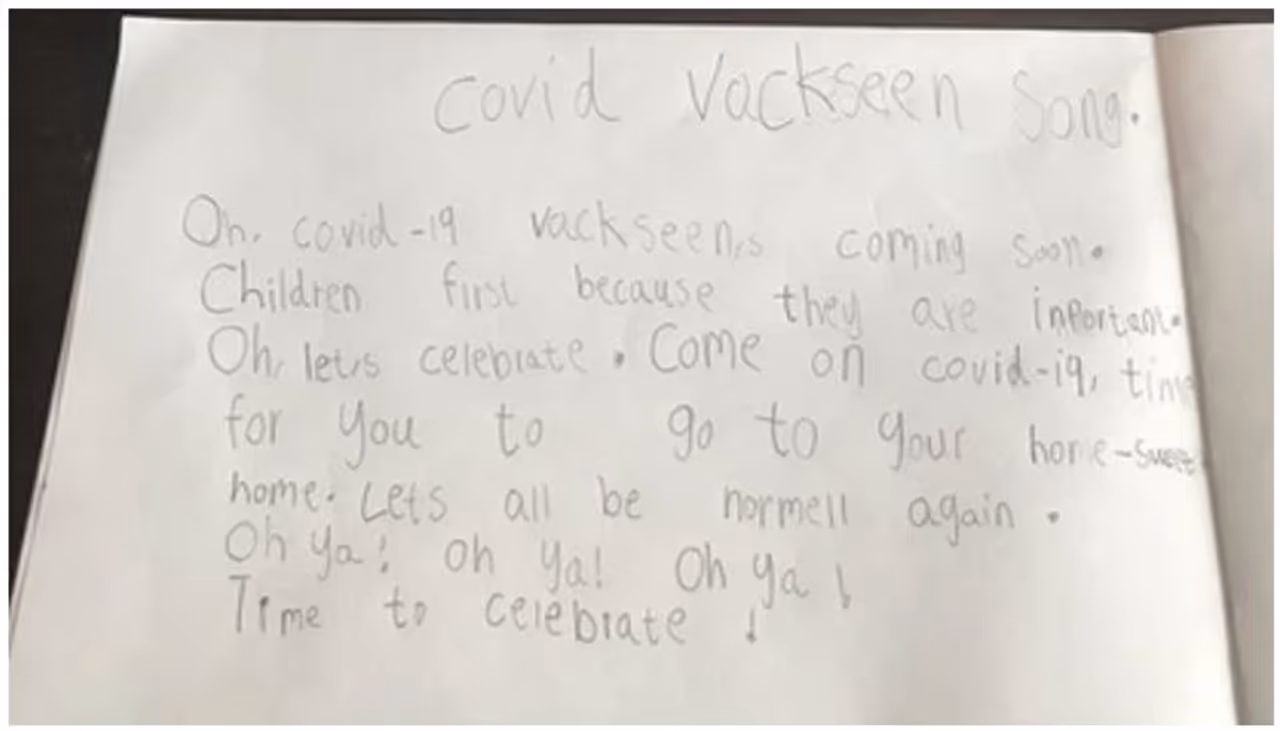 Covid Vackseen Song.
Oh, covid-19 vackseen,s coming soon.
Children first because they are inportant.
Oh, let,s celebrate. Come on covid-19, time
for you to go to your home-sweet
home. Lets all be normell again.
Oh ya! Oh ya! Oh ya!
Time to celebrate!